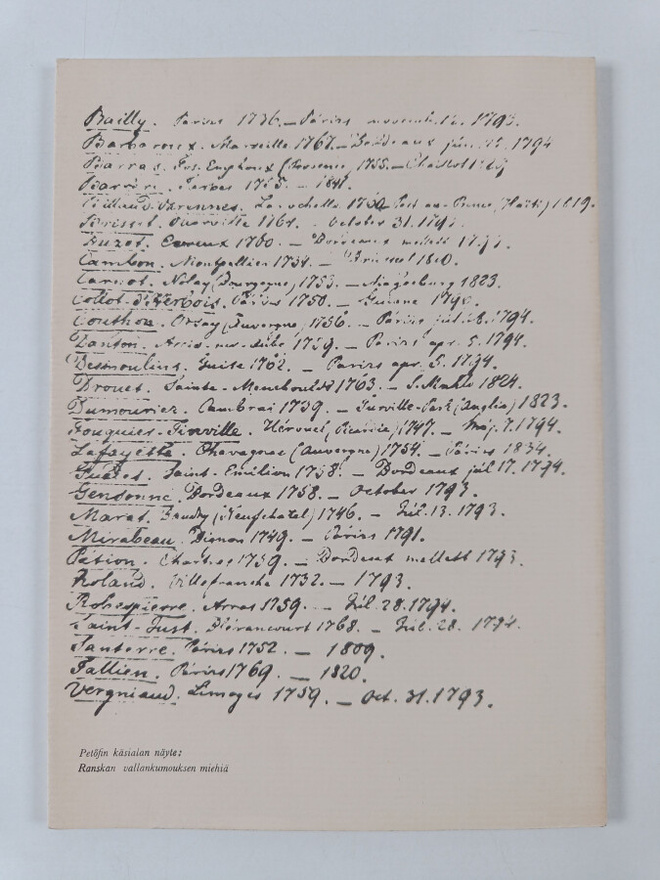 Bailly. Páris 1736. — Páris novemb. 12. 1793.
Barbaroux. Marseille 1767. — Bordeaux jún. 1794
Barras. Fos-Emphoux (Provence) 1755. — Chaillot 1829
Barrère. Tarbes 1755. — 1841.
Billaud-Varennes. La rochelle 1819.
Brissot. Ouarville 1764. — October 31. 1793.
Buzot. Evreux 1760. — Bordeaux mellett 1793.
Cambon. Montpellier 1754. — Brüssel 1820.
Carnot. Nolay (Bourgogne) 1753. — Magdeburg 1823.
Collot-d'Herbois. Páris 1750. — Guiane 1796.
Couthon. Orsay (Auvergne) 1756. — Páris júl. 28. 1794.
Danton. Arcis-sur-Aube 1759. — Páris apr. 5. 1794.
Desmoulins. Guise 1762. — Páris apr. 5. 1794.
Drouet. Sainte-Menehould 1763. — 1824.
Dumouriez. Cambrai 1739. — Turville-Park (Anglia) 1823.
Fouquier-Tinville. Hérouel 1747. — Maj. 7. 1794.
Lafayette. Chavagnac (Auvergne) 1757. — Páris 1834.
Guadet. Saint-Emilion 1758. — Bordeaux júl 17. 1794.
Gensonné. Bordeaux 1758. — October 1793.
Marat. Baudry (Neufchatel) 1746. — Júl. 13. 1793.
Mirabeau. Bignon 1749. — Páris 1791.
Pétion. Chartres 1759. — Bordeaux mellett 1793.
Roland. Villefranche 1732. — 1793.
Robespierre. Arras 1759. — Júl. 28. 1794.
Saint-Just. Blérancourt 1768. — Júl. 28. 1794.
Santerre. Páris 1752. — 1809.
Tallien. Páris 1769. — 1820.
Vergniaud. Limoges 1759. — Oct. 31. 1793.
Petőfin käsialan näyte:
Ranskan vallankumouksen miehiä